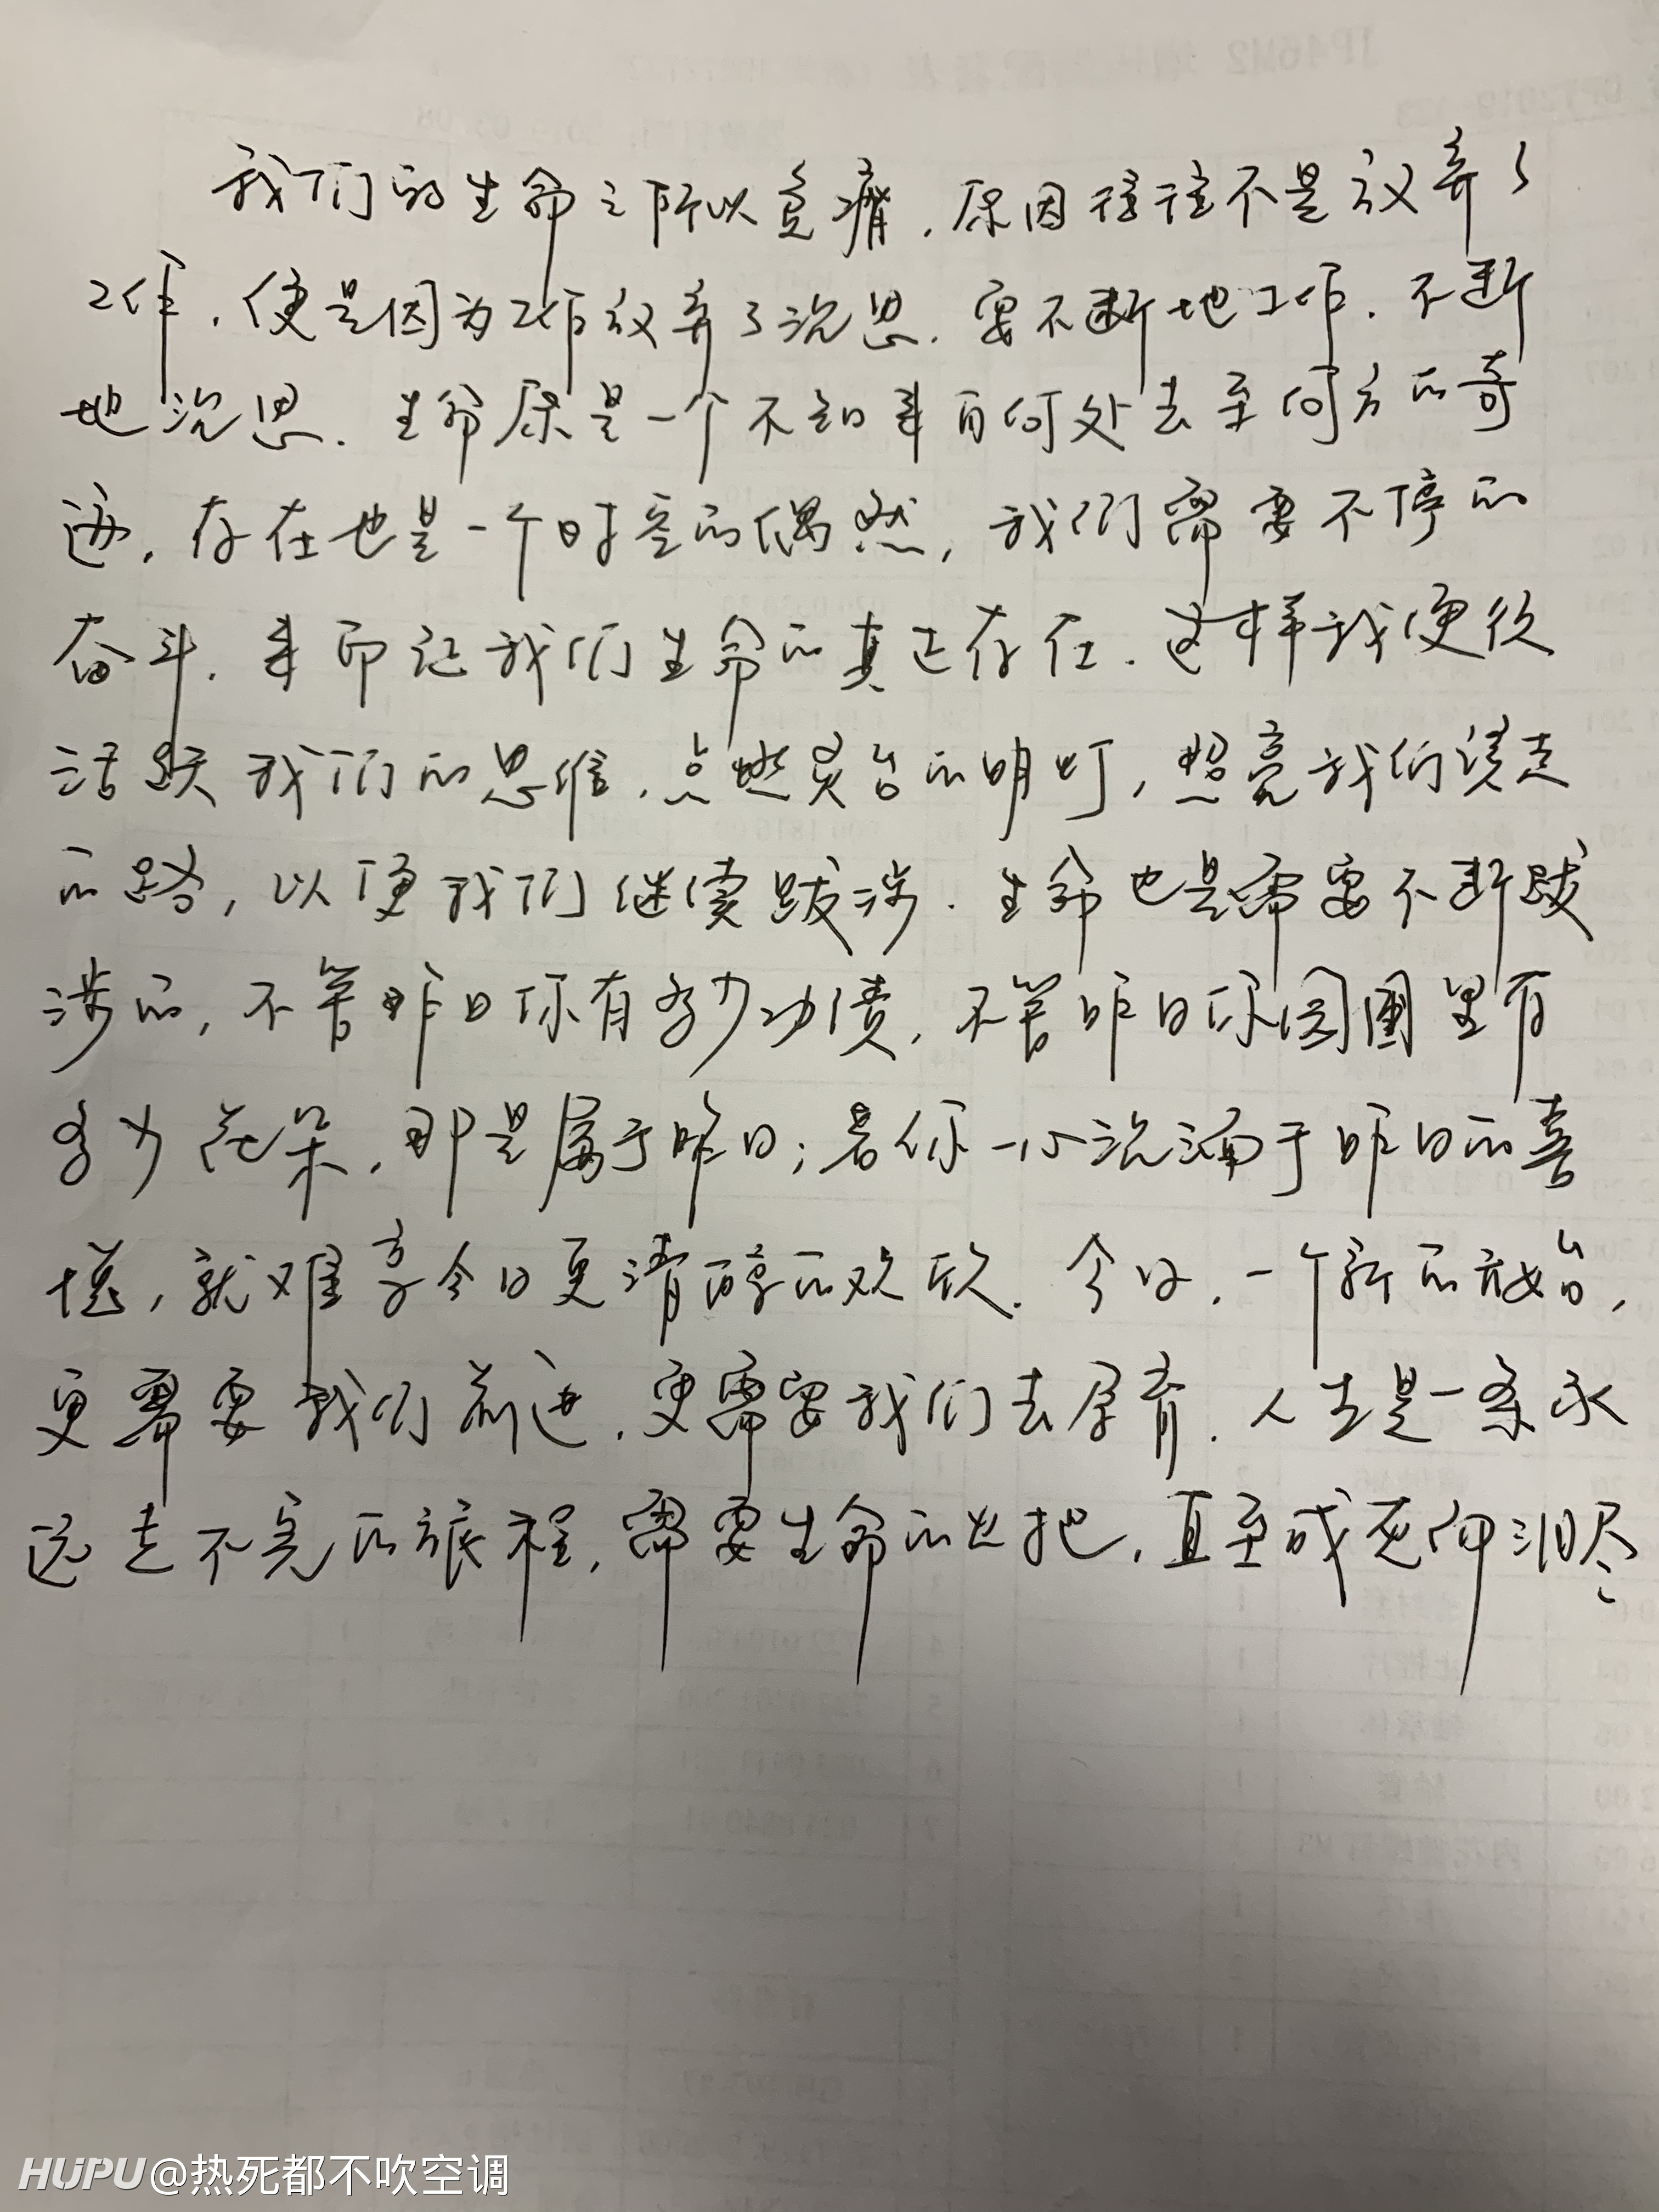 我们的生命之所以负瘠，原因往往不是放弃了
工作，便是因为工作放弃了沉思。要不断地工作，不断
地沉思。生命原是一个不知来自何处去至何方的奇
迹，存在也是一个时空的偶然，我们需要不停的
奋斗，来印证我们生命的真正存在。这样我便从
活跃我们的思维，点燃灵台的明灯，照亮我们该走
的路，以便我们继续跋涉。生命也是需要不断跋
涉的，不管昨日你有多少功绩，不管昨日你园圃里有
多少花朵，那是属于昨日；若你一心沉湎于昨日的喜
悦，就难享今日更清醇的欢欣。今日，一个新的开始，
更需要我们前进，更需要我们去孕育。人生是一条永
远走不完的旅程，需要生命的火把，直至成死仰泪尽
HUPU@热死都不吹空调